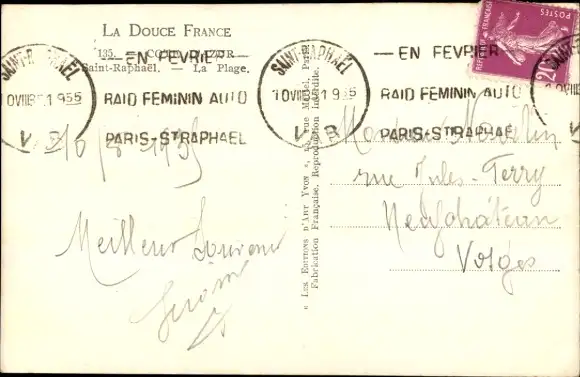 LA DOUCE FRANCE
135. — COTE D'AZUR
Saint-Raphaël. — La Plage.
SAINT-RAPHAËL
10 VIII 35 1955
VAR
— EN FEVRIER
RAID FEMININ AUTO
PARIS-ST RAPHAEL
SAINT-RAPHAËL
10 VIII 35 1955
VAR
— EN FEVRIER
RAID FEMININ AUTO
PARIS-ST RAPHAEL
POSTES
20
10/8/1935
Meilleur Souvenir
« LES EDITIONS D'ART YVON », Rue Martel, Paris
Fabrication Française. Reproduction Interdite.
Monsieur
rue Jules-Ferry
Neufchâteau
Vosges